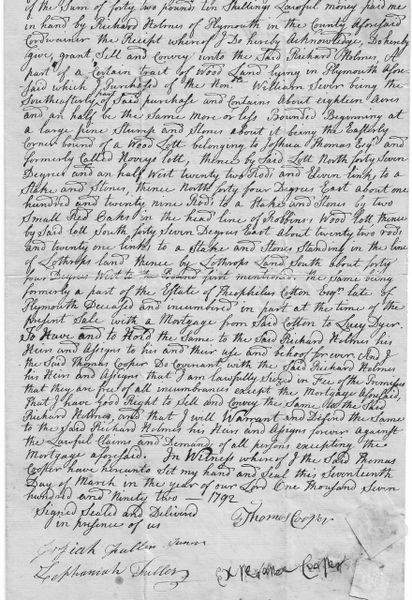 of the Sum of forty two pounds ten Shillings Lawful money paid me
in hand by Richard Holmes of Plymouth in the County aforesaid
Cordwainer the Receipt whereof I Do hereby Acknowledge, Do hereby
give, grant Sell and Convey unto the Said Richard Holmes, A
part of a Certain Tract of Wood Land lying in Plymouth afore
Said which I purchased of the Honle William Sever being the
Southeasterly of Said purchase and Contains About eighteen Acres
and an half be the Same more or less Bounded Beginning at
a large pine Stump and Stones about it being the Easterly
Corner bound of a Wood Lott belonging to Joshua Thomas Esqr and
formerly Called Hoveys lott, thence by Said Lott North forty Seven
Degrees and an half West twenty two Rods and Eleven links, to a
Stake and Stones, thence North forty four Degrees East about one
hundred and twenty nine Rods to a Stake and Stones by two
Small Red Oaks in the head line of Robbins Wood lott, thence
by Said lott South forty Seven Degrees East about twenty two rods
and twenty one links to a Stake and Stones Standing in the line
of Lothrops land thence by Lothrops Land South about forty
four Degrees West to the Bound first mentioned the Same being
formerly a part of the Estate of Theophilus Cotton Esqr late of
Plymouth Deceased and incumbred in part at the time of the
present Sale with a Mortgage from Said Cotton to Lucy Dyer.
To Have and to Hold the Same to the Said Richard Holmes his
Heirs and Assigns to his and their use and behoof forever And I
the Said Thomas Cooper Do Covenant with the Said Richard Holmes
his Heirs and Assigns that I am lawfully Seized in Fee of the Premises
that they are free of all incumbrances except the Mortgage Aforesaid,
That I have Good Right to Sell and Convey the Same to the Said
Richard Holmes, and that I will Warrant and Defend the Same
to the Said Richard Holmes his Heirs and Assigns forever against
the Lawful Claims and Demands of all persons excepting the
Mortgage aforesaid. In Witness whereof I the Said Thomas
Cooper have hereunto Set my hand and Seal this Seventeenth
Day of March in the year of our Lord One Thousand Seven
hundred and Ninety two — 1792
Signed Sealed and Delivered
in presence of us
Thomas Cooper
Josiah Fuller
Zephaniah Fuller
Experance Cooper